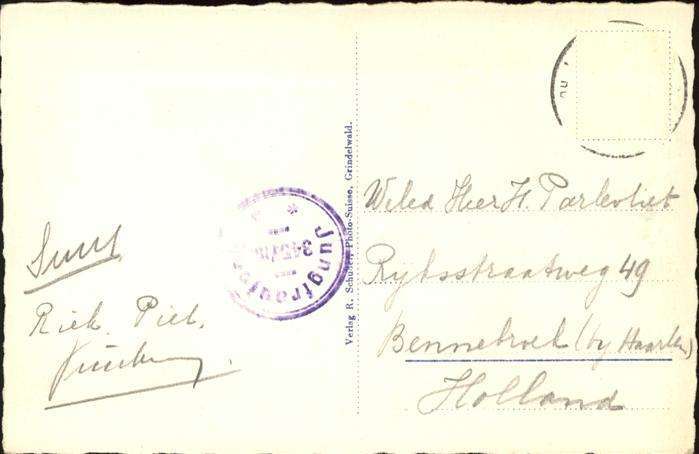 Riek. Piet.
Jungfraujoch
3457 m
Verlag R. Schudel, Photo-Suisse, Grindelwald.
Weled Heer H. Parlevliet
Rijksstraatweg 49
Bennebroek (by Haarlem)
Holland